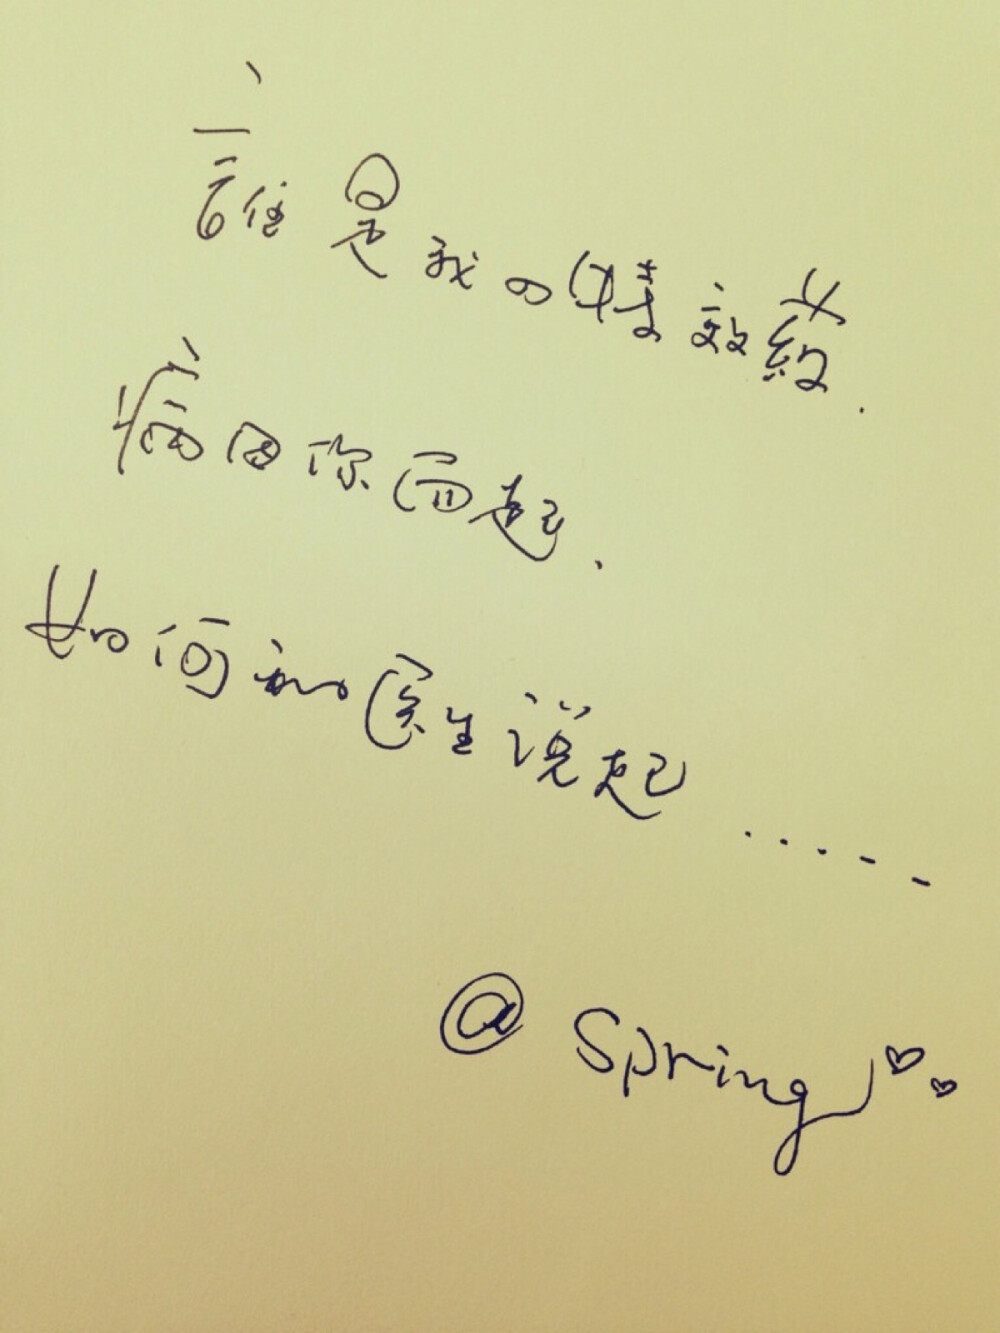 誰是我の特效藥.
病因你而起.
如何和医生说起......
@ Spring